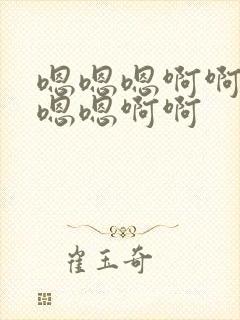 嗯嗯嗯啊啊
嗯嗯啊啊
崔玉奇